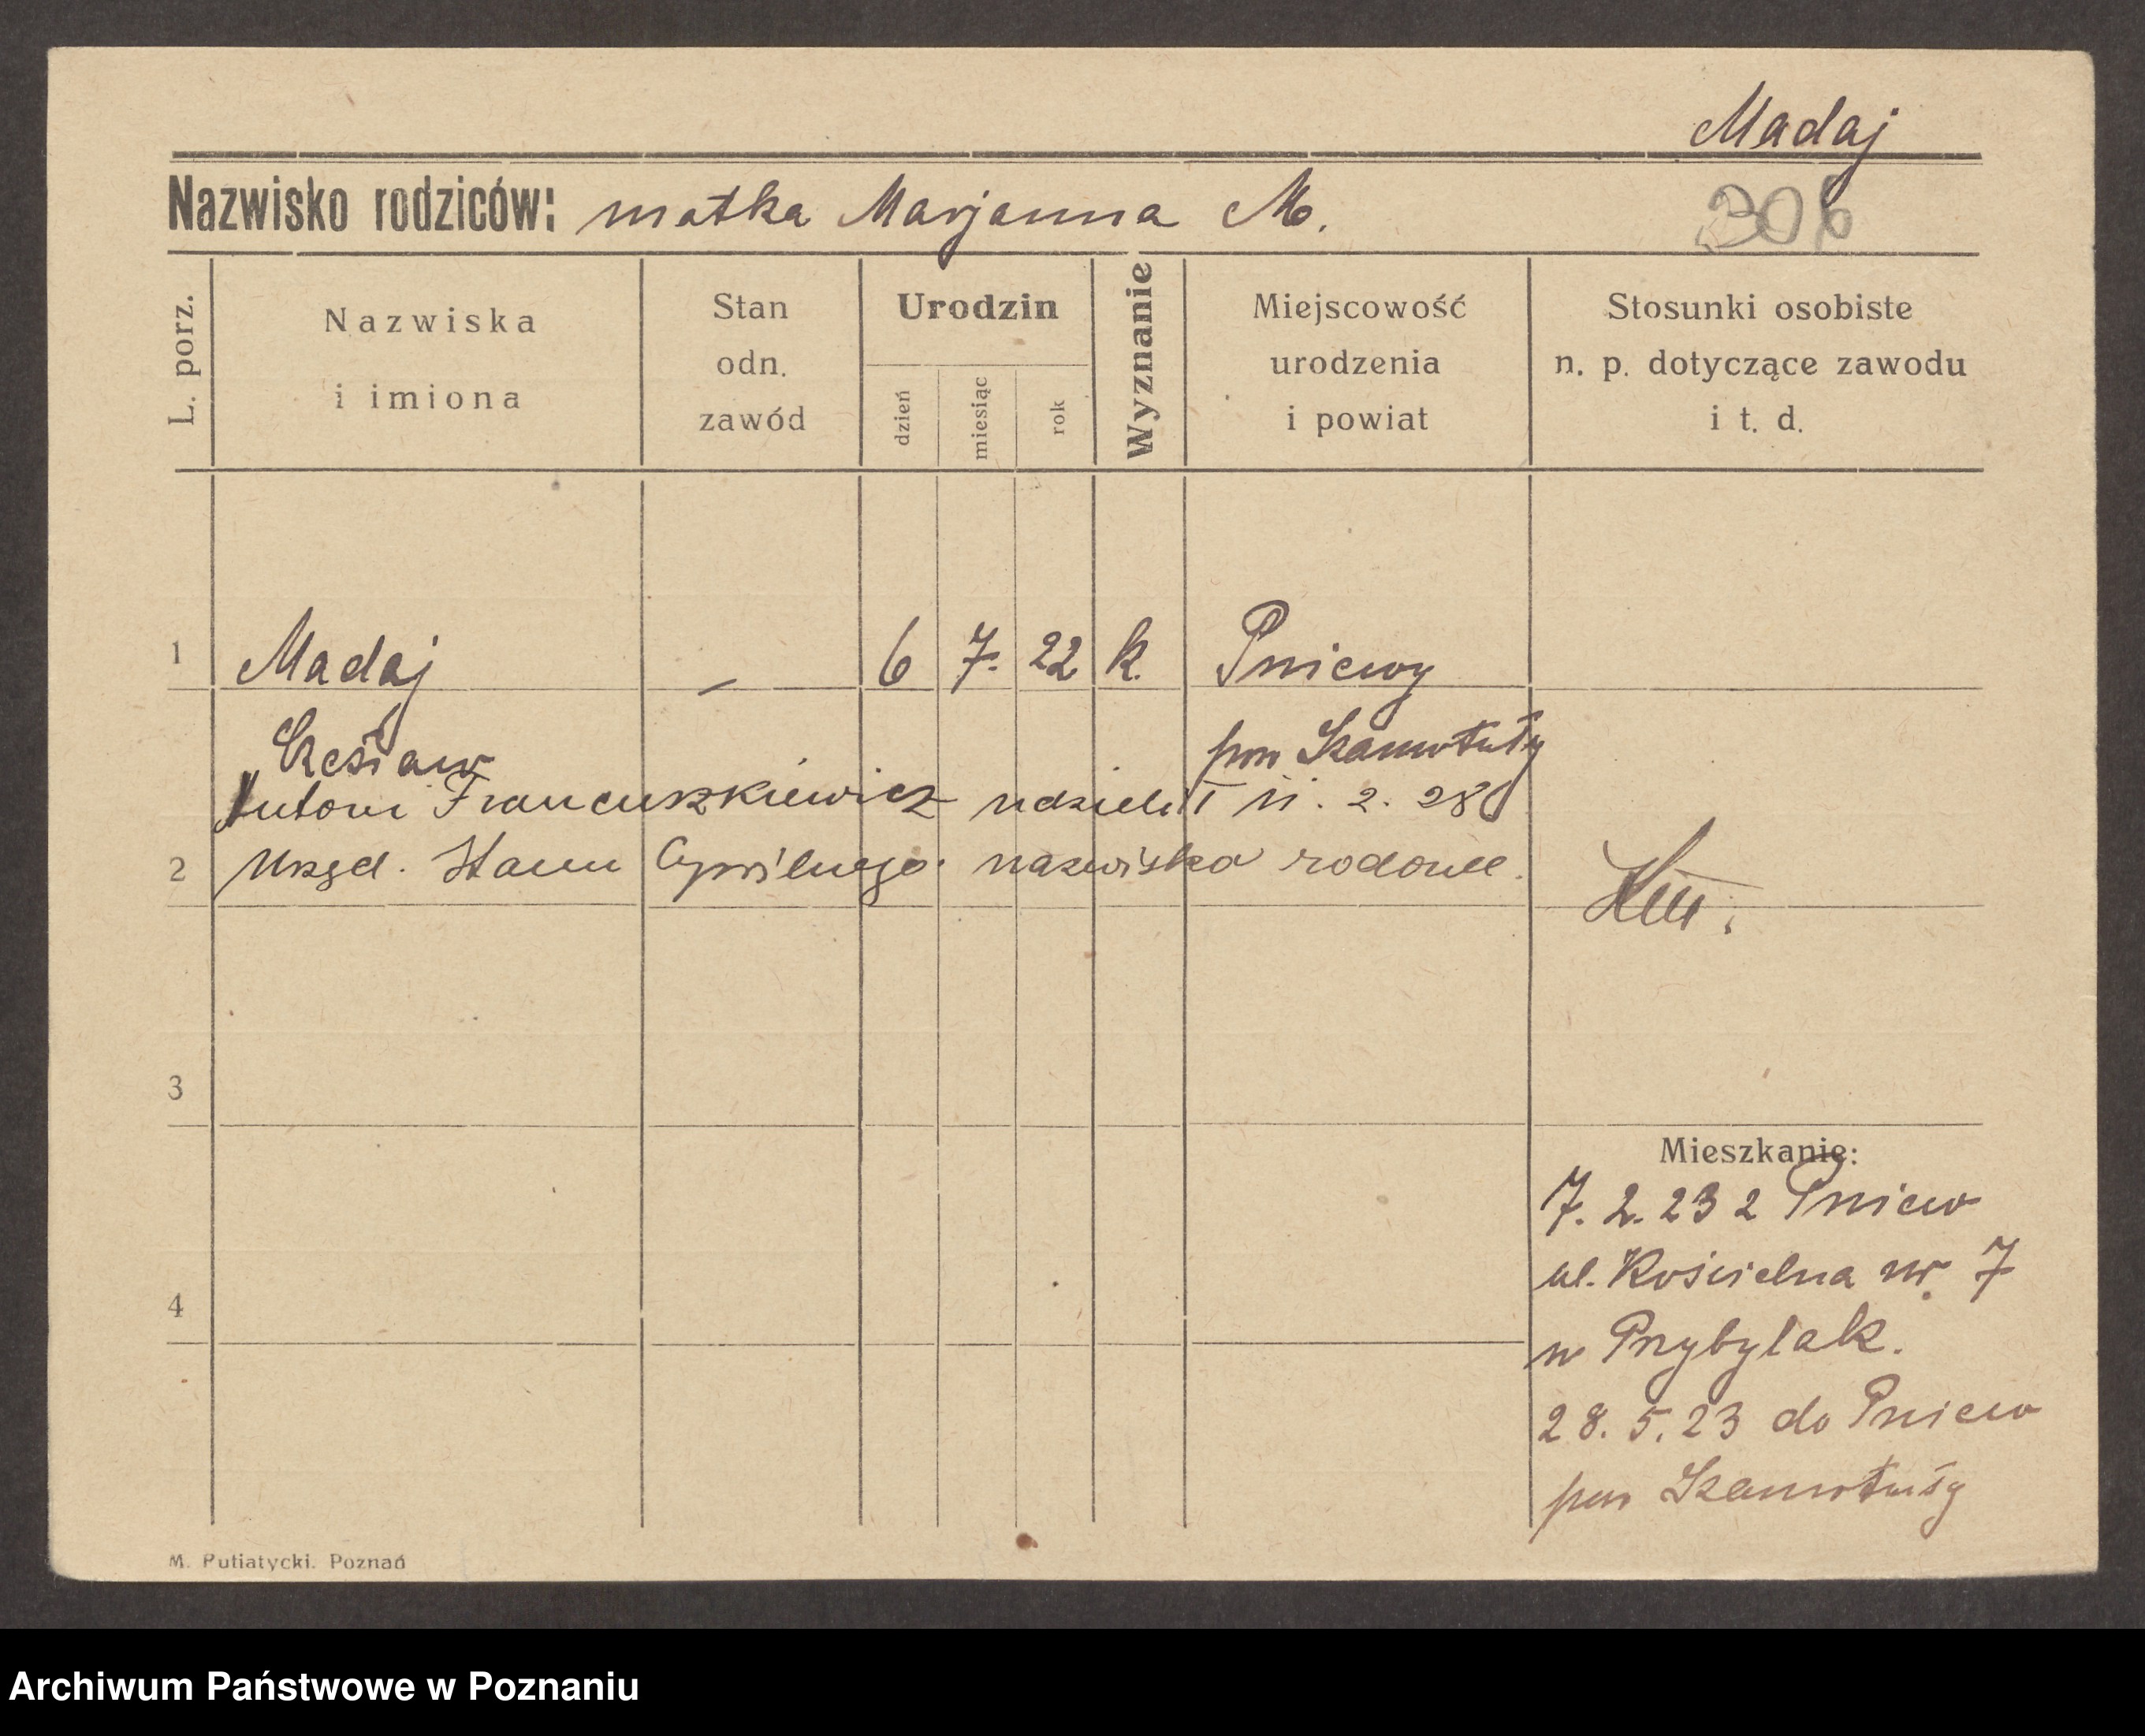 Madaj
Nazwisko rodziców: matka Marjanna M.
306
L. porz.
Nazwiska i imiona
Stan odn. zawód
Urodzin
dzień
miesiąc
rok
Wyznanie
Miejscowość urodzenia i powiat
Stosunki osobiste n. p. dotyczące zawodu i t. d.
1 Madaj – 6 7. 22 k. Pniewy
Czesław pow Szamotuły
Antoni Francuszkiewicz udzielił 11. 2. 28
2 Urzęd. Stanu Cywilnego nazwiska rodowe.
3
Mieszkanie:
7. 2. 23 z Pniew
ul. Kościelna nr. 7
4
w Przybylak.
28. 5. 23 do Pniew
pow Szamotuły
M. Putiatycki. Poznań
Archiwum Państwowe w Poznaniu